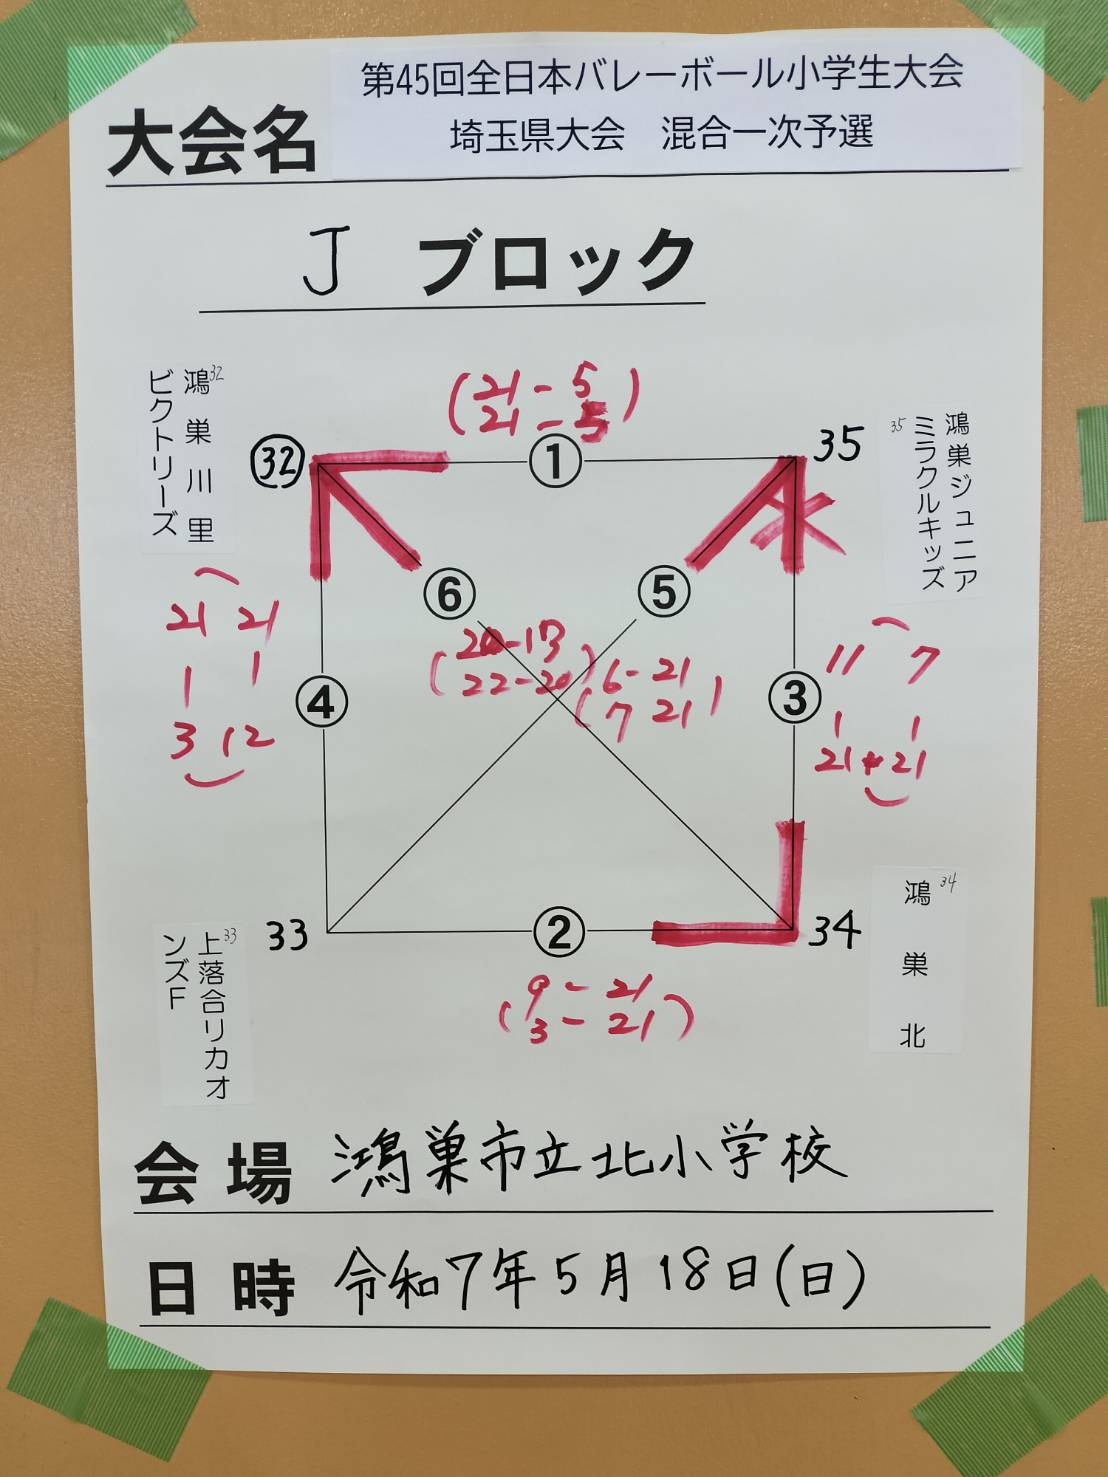 第45回全日本バレーボール小学生大会
大会名
埼玉県大会　混合一次予選
J ブロック
32
鴻巣川里
ビクトリーズ
(21-5)
21-5
32
①
35
35
鴻巣ジュニア
ミラクルキッズ
⑥
⑤
21 21
1 1
3 12
④
22-20
6-21
7 21
③
11 7
1 1
21 21
33
②
34
9-21
3-21
33
上落合リカオ
ンズF
34
鴻巣北
会場 鴻巣市立北小学校
日時 令和7年5月18日(日)